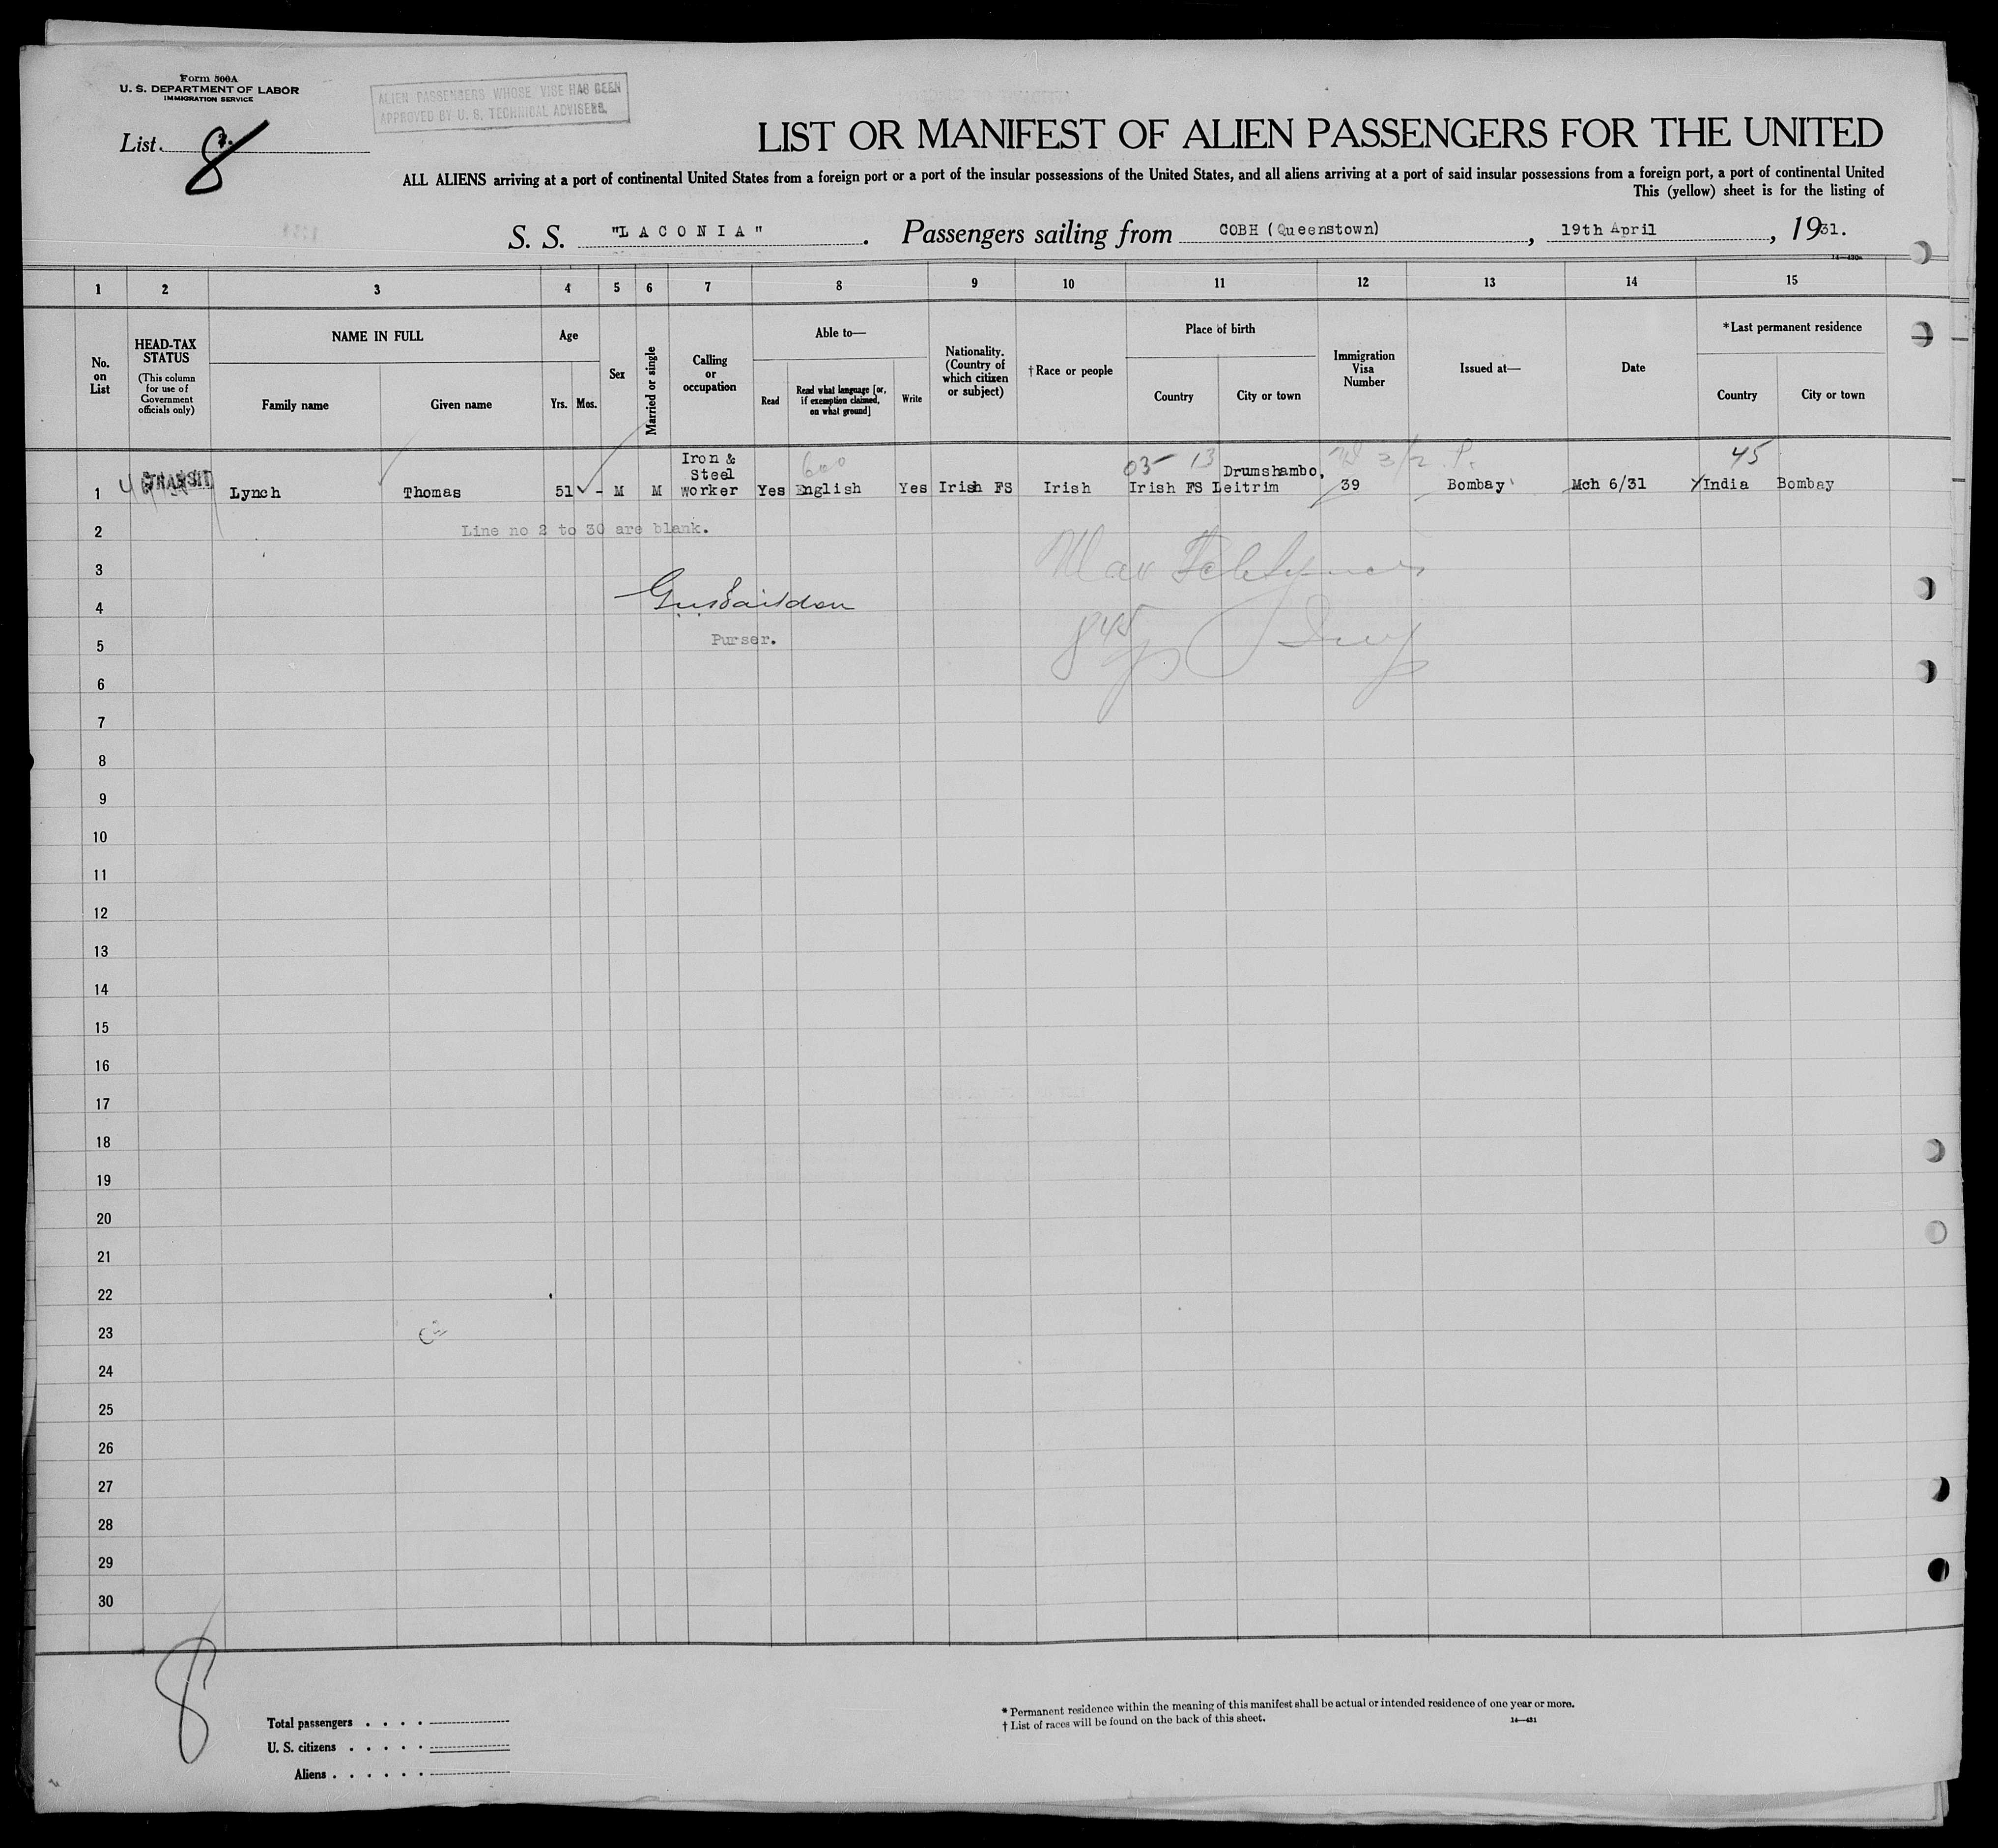 Form 500A
U. S. DEPARTMENT OF LABOR
IMMIGRATION SERVICE
ALIEN PASSENGERS WHOSE VISE HAS BEEN
APPROVED BY U. S. TECHNICAL ADVISERS.
List 8
LIST OR MANIFEST OF ALIEN PASSENGERS FOR THE UNITED
ALL ALIENS arriving at a port of continental United States from a foreign port or a port of the insular possessions of the United States, and all aliens arriving at a port of said insular possessions from a foreign port, a port of continental United
This (yellow) sheet is for the listing of
S. S. "LACONIA". Passengers sailing from COBH (Queenstown), 19th April, 1931.
1 2 3 4 5 6 7 8 9 10 11 12 13 14 15
No. on List
HEAD-TAX STATUS
(This column for use of Government officials only)
NAME IN FULL
Family name
Given name
Age
Yrs. Mos.
Sex
Married or single
Calling or occupation
Able to—
Read
Read what language [or, if exemption claimed, on what ground]
Write
Nationality. (Country of which citizen or subject)
† Race or people
Place of birth
Country
City or town
Immigration Visa Number
Issued at—
Date
*Last permanent residence
Country
City or town
600 03 13 3/2 P. 45
1 TRANSIT Lynch Thomas 51 - M M Iron & Steel worker Yes English Yes Irish FS Irish Irish FS Drumshambo, Leitrim 39 Bombay Mch 6/31 India Bombay
2 Line no 2 to 30 are blank.
3
4
5 Purser.
6
7
8
9
10
11
12
13
14
15
16
17
18
19
20
21
22
23
24
25
26
27
28
29
30
8
Total passengers . . . .
U. S. citizens . . . . .
Aliens . . . . . .
* Permanent residence within the meaning of this manifest shall be actual or intended residence of one year or more.
† List of races will be found on the back of this sheet.
14—431